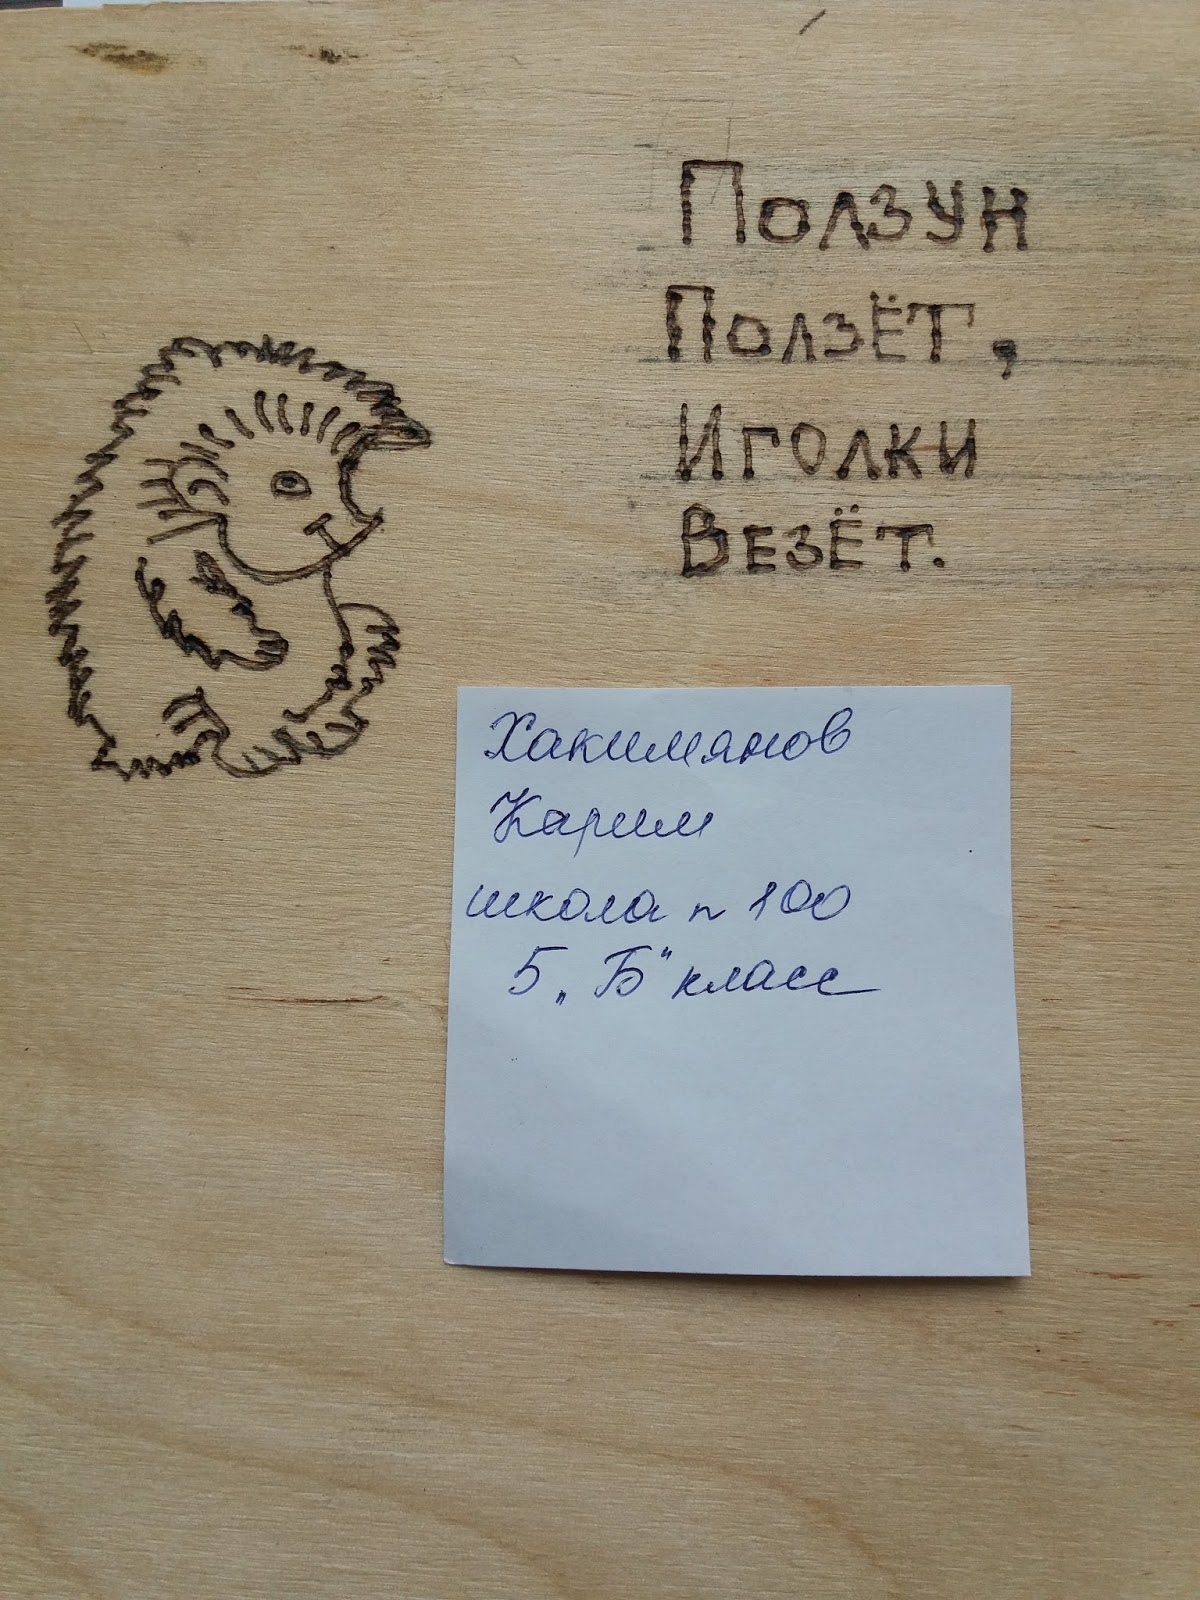 Ползун
Ползёт,
Иголки
Везёт.
Хакимянов
Карим
школа n 100
5 „Б" класс